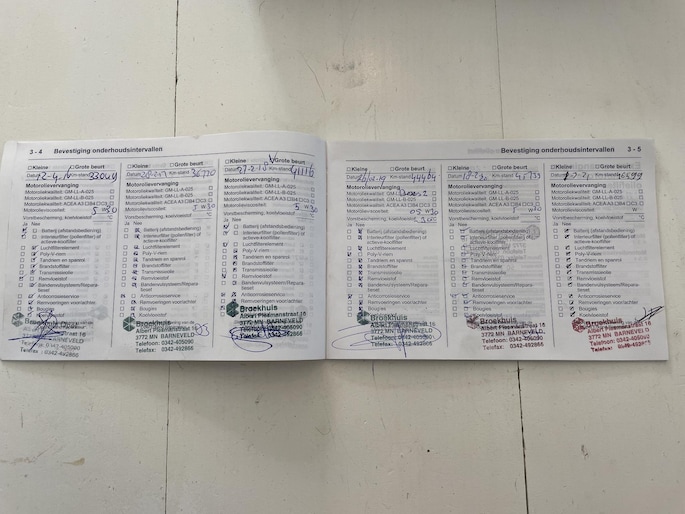 3 - 4 Bevestiging onderhoudsintervallen
Kleine Grote beurt
Datum Km-stand 33049
Motorolieverversing
Motoroliekwaliteit: GM-LL-A-025
Motoroliekwaliteit: GM-LL-B-025
Motorolieviscositeit: 5 W30
Vorstbescherming, koelvloeistof °C
Ja Nee
Batterij (afstandsbediening)
Interieurfilter (pollenfilter) of
actieve-koolfilter
Luchtfilterelement
Poly-V-riem
Tandriem en spanrol
Brandstoffilter
Transmissieolie
Remvloeistof
Bandenvulsysteem/Repara-
tieset
Anticorrosieservice
Remvoeringen voor/achter
Bougies
Koelvloeistof
Broekhuis
3772 MN BARNEVELD
Telefoon: 0342-405090
Telefax: 0342-492866
Kleine Grote beurt
Datum Km-stand 36720
Motorolieverversing
Motoroliekwaliteit: GM-LL-A-025
Motoroliekwaliteit: GM-LL-B-025
Motorolieviscositeit: 5 W30
Vorstbescherming, koelvloeistof °C
Ja Nee
Batterij (afstandsbediening)
Interieurfilter (pollenfilter) of
actieve-koolfilter
Luchtfilterelement
Poly-V-riem
Tandriem en spanrol
Brandstoffilter
Transmissieolie
Remvloeistof
Bandenvulsysteem/Repara-
tieset
Anticorrosieservice
Remvoeringen voor/achter
Bougies
Broekhuis
Albert Plesmanstraat 16
3772 MN BARNEVELD
Telefoon: 0342-405090
Telefax: 0342-492866
Kleine Grote beurt
Datum 27-2-18 Km-stand 41116
Motorolieverversing
Motoroliekwaliteit: GM-LL-A-025
Motoroliekwaliteit: GM-LL-B-025
Motorolieviscositeit: 5 W30
Vorstbescherming, koelvloeistof °C
Ja Nee
Batterij (afstandsbediening)
Interieurfilter (pollenfilter) of
actieve-koolfilter
Luchtfilterelement
Poly-V-riem
Tandriem en spanrol
Brandstoffilter
Transmissieolie
Remvloeistof
Bandenvulsysteem/Repara-
tieset
Anticorrosieservice
Remvoeringen voor/achter
Broekhuis
Albert Plesmanstraat 16
3772 MN BARNEVELD
Telefoon: 0342-405090
Telefax: 0342-492866
Bevestiging onderhoudsintervallen 3 - 5
Kleine Grote beurt
Datum Km-stand 44464
Motorolieverversing
Motoroliekwaliteit: GM-LL-A-025
Motoroliekwaliteit: GM-LL-B-025
Motorolieviscositeit: W30
Vorstbescherming, koelvloeistof
Ja Nee
Batterij (afstandsbediening)
Interieurfilter (pollenfilter) of
actieve-koolfilter
Luchtfilterelement
Poly-V-riem
Tandriem en spanrol
Brandstoffilter
Transmissieolie
Remvloeistof
Bandenvulsysteem/Repara-
tieset
Anticorrosieservice
Remvoeringen voor/achter
Bougies
Broekhuis
Albert Plesmanstraat 16
3772 MN BARNEVELD
Telefoon: 0342-405090
Telefax: 0342-492866
Kleine Grote beurt
Datum Km-stand 45733
Motorolieverversing
Motoroliekwaliteit: GM-LL-A-025
Motoroliekwaliteit: GM-LL-B-025
Motorolieviscositeit: W
Vorstbescherming, koelvloeistof °C
Ja Nee
Batterij (afstandsbediening)
Interieurfilter (pollenfilter) of
actieve-koolfilter
Luchtfilterelement
Poly-V-riem
Tandriem en spanrol
Brandstoffilter
Transmissieolie
Remvloeistof
Bandenvulsysteem/Repara-
tieset
Anticorrosieservice
Remvoeringen voor/achter
Bougies
Broekhuis
Albert Plesmanstraat 16
3772 MN BARNEVELD
Telefoon: 0342-405090
Telefax: 0342-492866
Kleine Grote beurt
Datum Km-stand
Motorolieverversing
Motoroliekwaliteit: GM-LL-A-025
Motoroliekwaliteit: GM-LL-B-025
Motorolieviscositeit: W
Vorstbescherming, koelvloeistof °C
Ja Nee
Batterij (afstandsbediening)
Interieurfilter (pollenfilter) of
actieve-koolfilter
Luchtfilterelement
Poly-V-riem
Tandriem en spanrol
Brandstoffilter
Transmissieolie
Remvloeistof
Bandenvulsysteem/Repara-
tieset
Anticorrosieservice
Remvoeringen voor/achter
Bougies
Koelvloeistof
Broekhuis
Albert Plesmanstraat 16
3772 MN BARNEVELD
Telefoon: 0342-405090